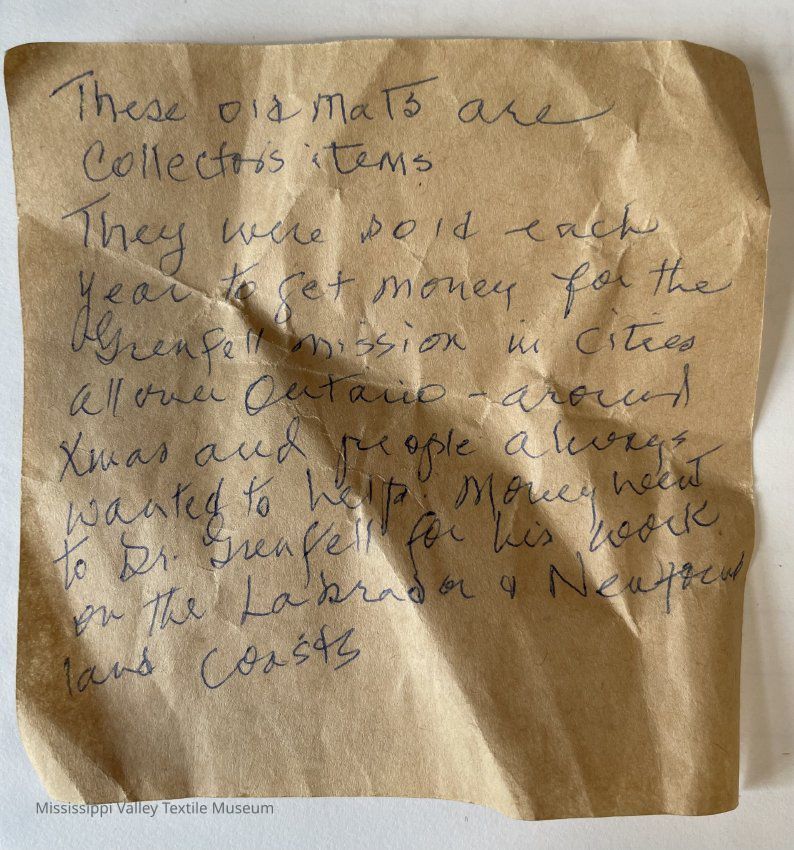 These old mats are
Collectors items
They were sold each
year to get money for the
Grenfell mission in cities
all over Ontario - around
Xmas and people always
wanted to help. Money went
to Dr. Grenfell for his work
on the Labrador & Newfound
land coasts
Mississippi Valley Textile Museum